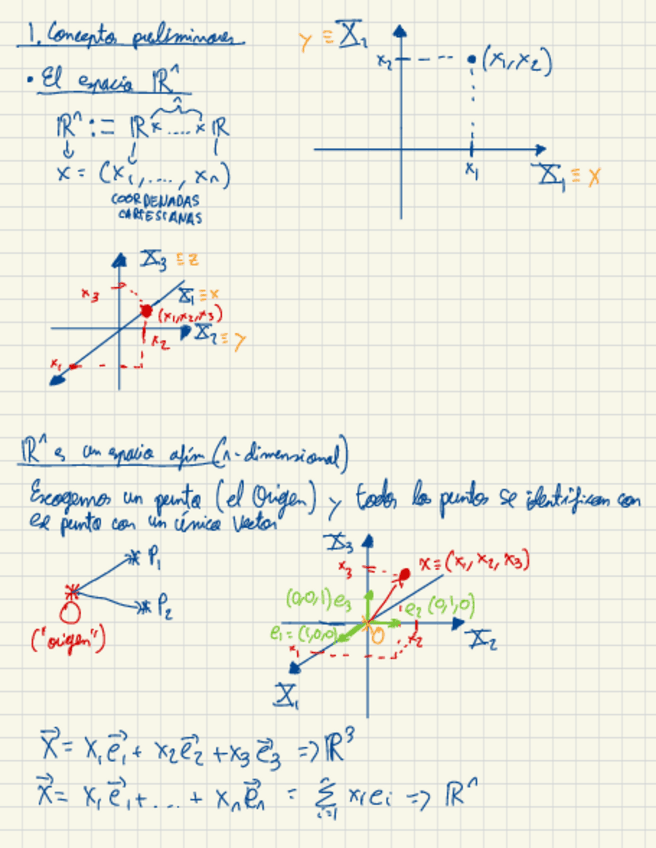 1. Conceptos preliminares
• El espacio ℝⁿ
ℝⁿ := ℝ x .... x ℝ
n
x = (x₁, ...., xₙ)
COORDENADAS
CARTESIANAS
y ≡ X₂
x₂
(x₁, x₂)
x₁
X₁ ≡ x
X₃ ≡ z
x₃
X₁ ≡ x
(x₁, x₂, x₃)
X₂ ≡ y
x₂
x₁
ℝⁿ es un espacio afín (n-dimensional)
Escogemos un punto (el Origen) y todos los puntos se identifican con
ese punto con un único vector
P₁
P₂
O
("origen")
X₃
x₃
x ≡ (x₁, x₂, x₃)
(0,0,1) e₃
e₂ (0,1,0)
e₁ = (1,0,0)
O
x₂
X₂
x₁
X₁
x⃗ = x₁e⃗₁ + x₂e⃗₂ + x₃e⃗₃ => ℝ³
x⃗ = x₁e⃗₁ + ... + xₙe⃗ₙ = Σⁿᵢ₌₁ xᵢeᵢ => ℝⁿ